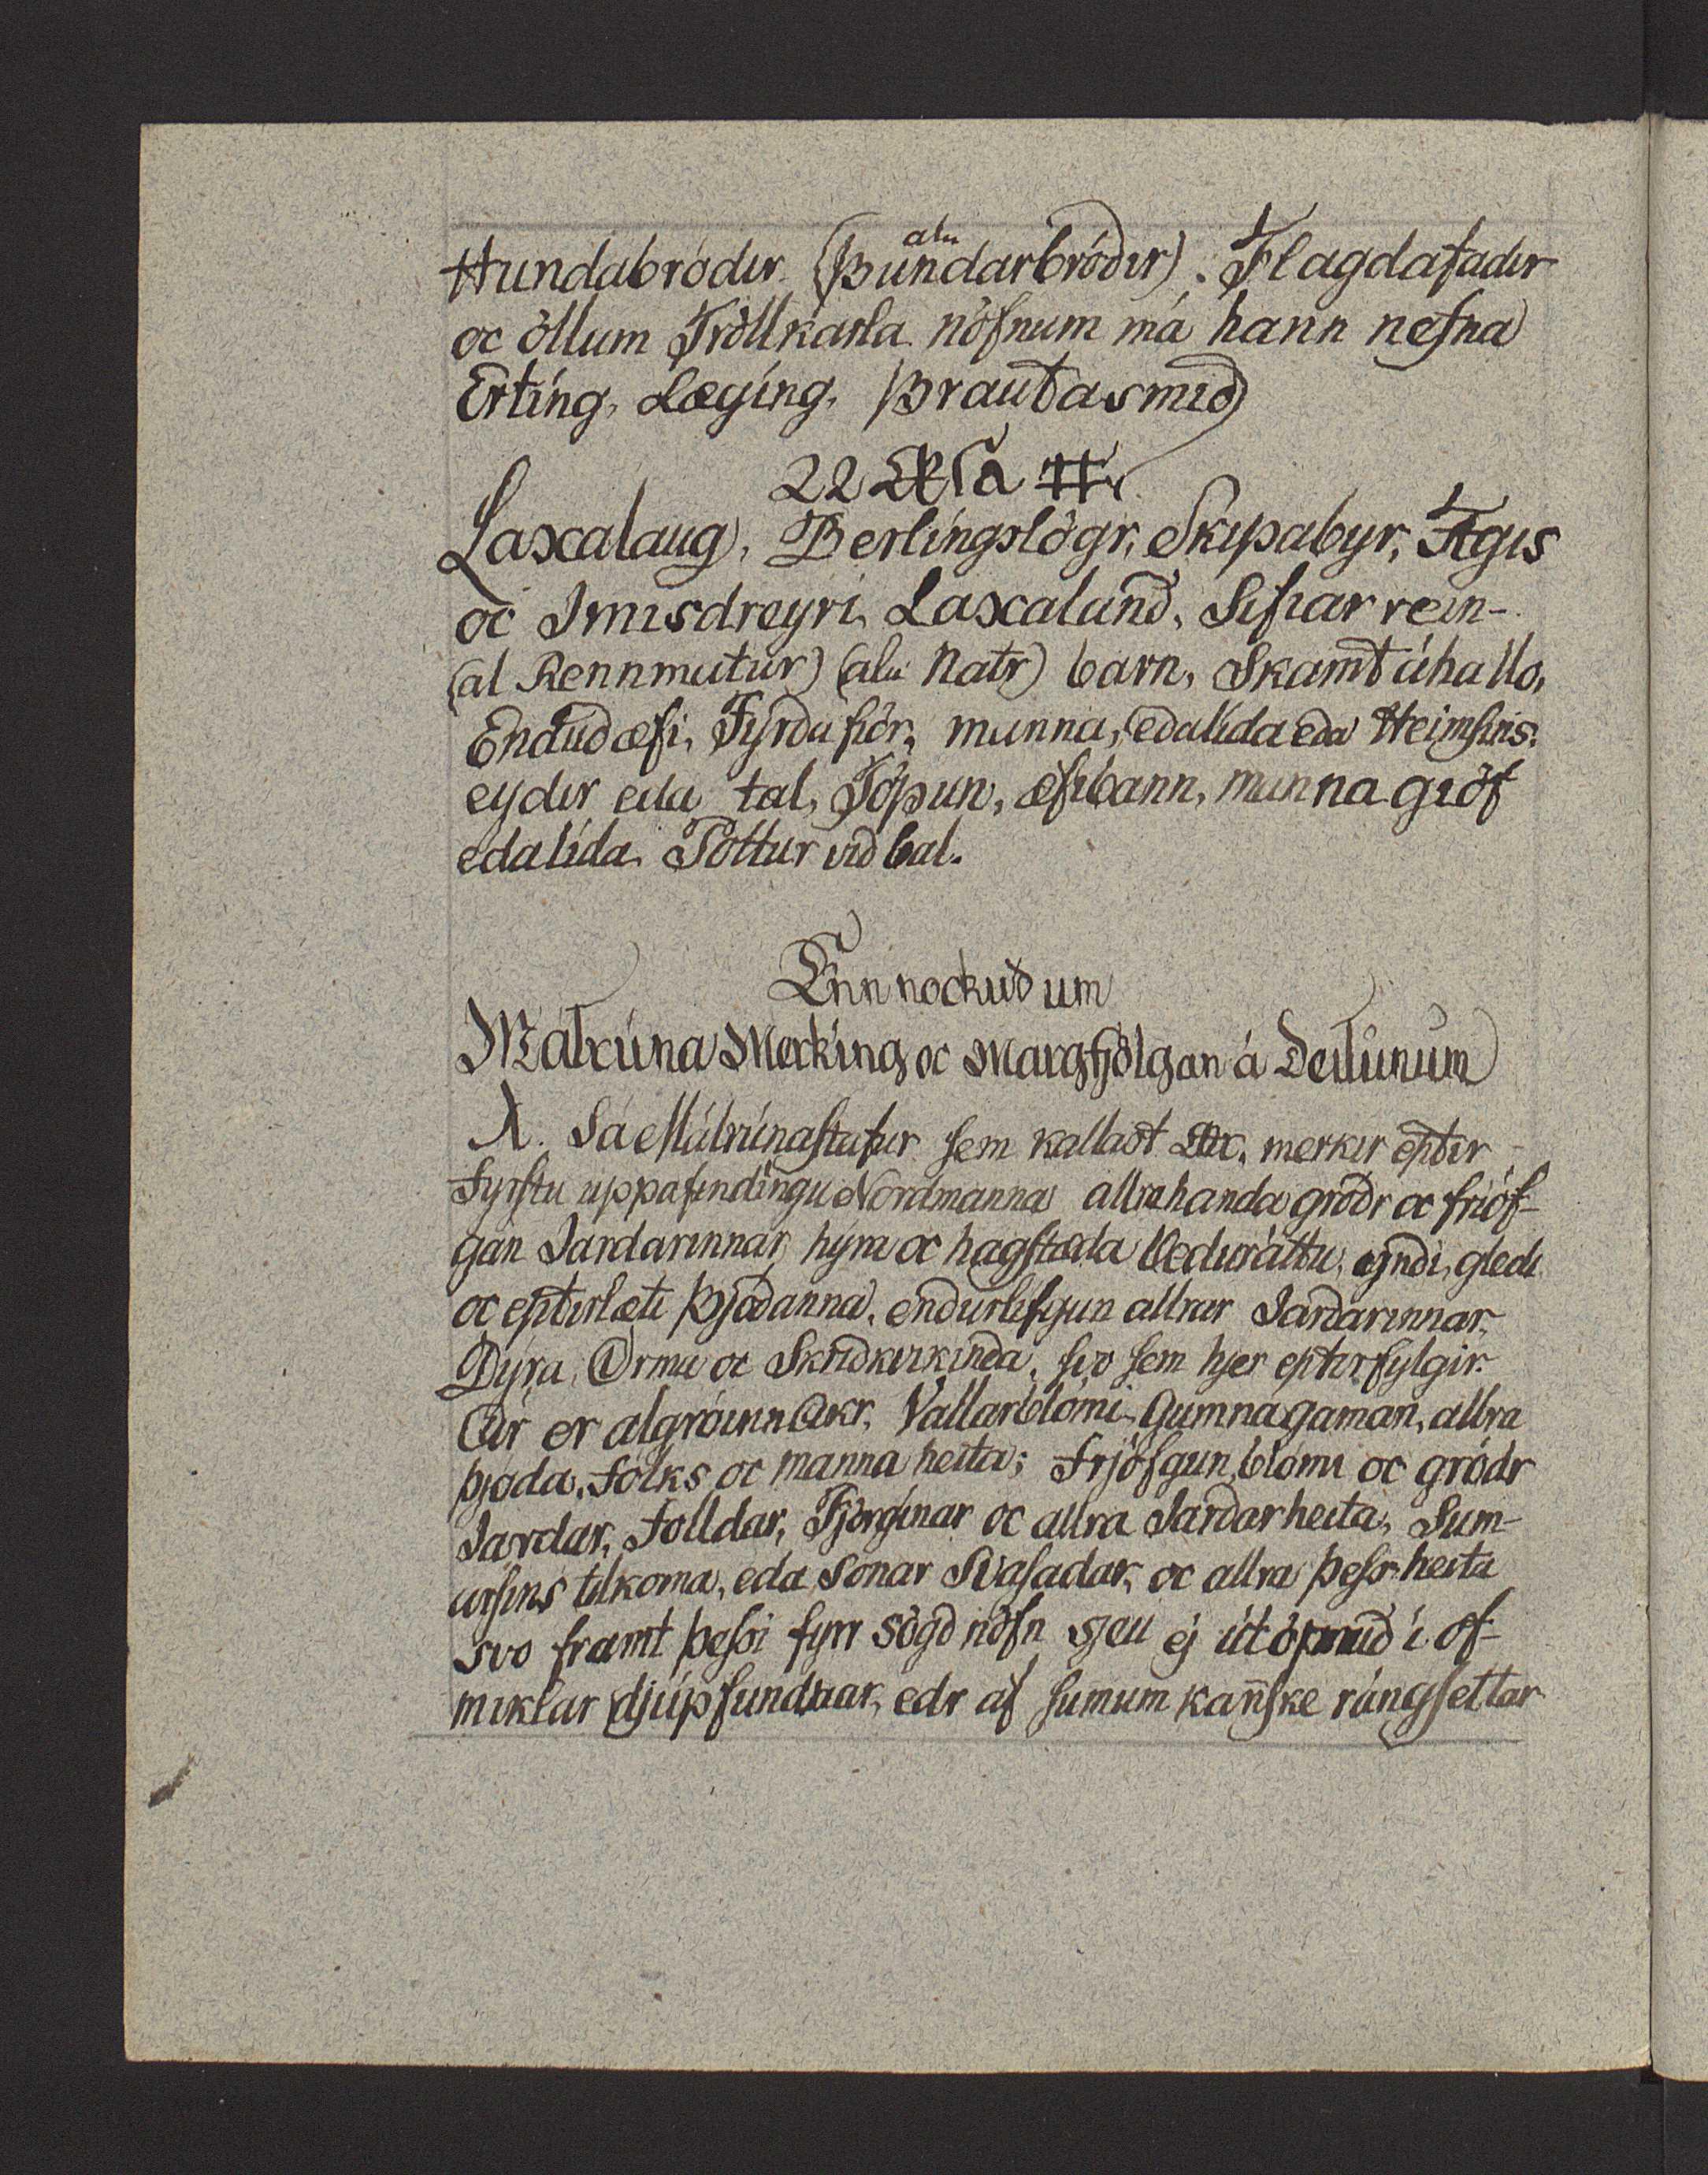 Hundabrodir (Þundarbrödir). Flagdafadir
alii
oc öllum Tröllkarla nöfnum má hann nefna
Erting, Læging, Þrautasmid
22
Laxalaug, Berlingslögr, Skipabyr, Ægis
oc Imisdreyri, Laxaland, Sifiar rein-
(al Rennmutur) (alii Natr) barn, Skamtáhallo,
Endud æfi, Fyrda fiör, munna, eda lida eda Heimsins
eydir eda tal, Töpun, æfibann, munna giöf
eda lida. Pottur vid bal.
Enn nockud um
Málrúna Merking oc Margfjölgan á Deilunum
A. Sa Málrúnastafur sem kallast merkir eptir
fyrstu uppafindingu Nordmanna allrahanda grodr oc friöf-
gan Jardarinnar, hyra oc hagstæda Veduráttu, yndi, gledi
oc eptirlæti Þjodanna, endurlifgun allrar Jardarinnar,
Dyra, Orma oc Skridkvikinda, svo sem hjer eptir fylgir.
Ár er algróinn Akr, Vallarblómi, Gumna gaman, allra
þjoda, folks oc manna heita; Frjöfgun, blomi oc gródr
Jardar, Folldar, Fjörginar oc allra Jardar heita, Sum-
arsins tilkoma, eda Sonar Svasadar, oc allra þess heita
svo framt þessi fyrr sögd nöfn sjeu ej í of-
miklar djúpfundnar, edr af sumum kanske rángsettar